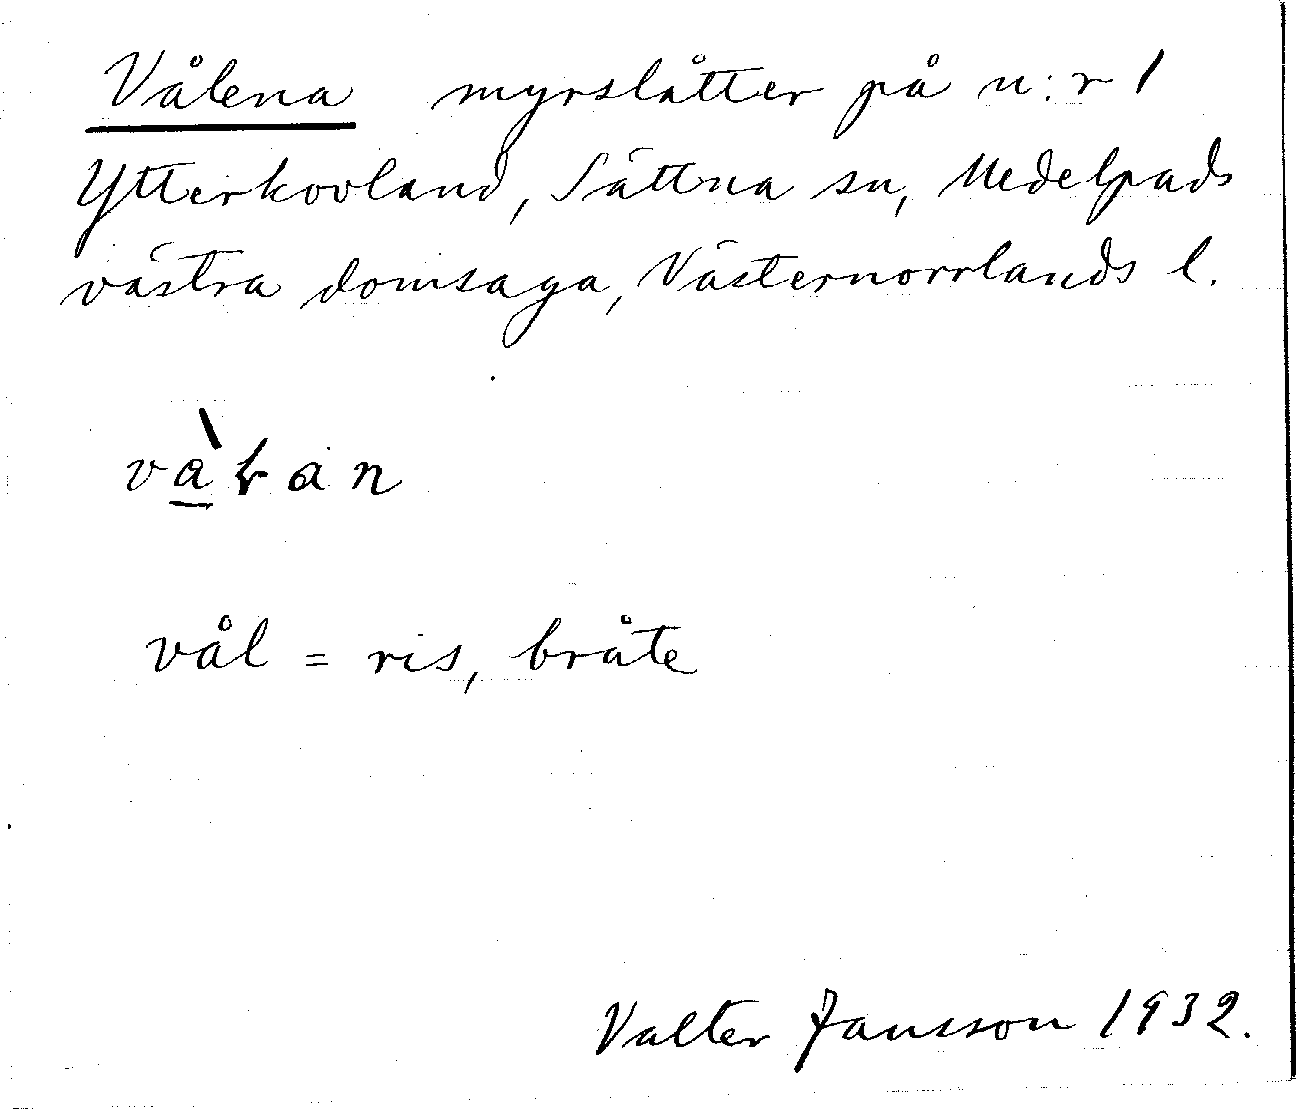 Vålena myrslåtter på n:r 1
Ytterkovland, Sättna sn, Medelpads
västra domsaga, Västernorrlands l.
và̱ɽan
vål = ris, bråte
Valter Jansson 1932.